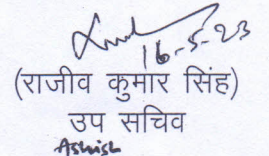 16-5-23
(राजीव कुमार सिंह)
उप सचिव
Ashish